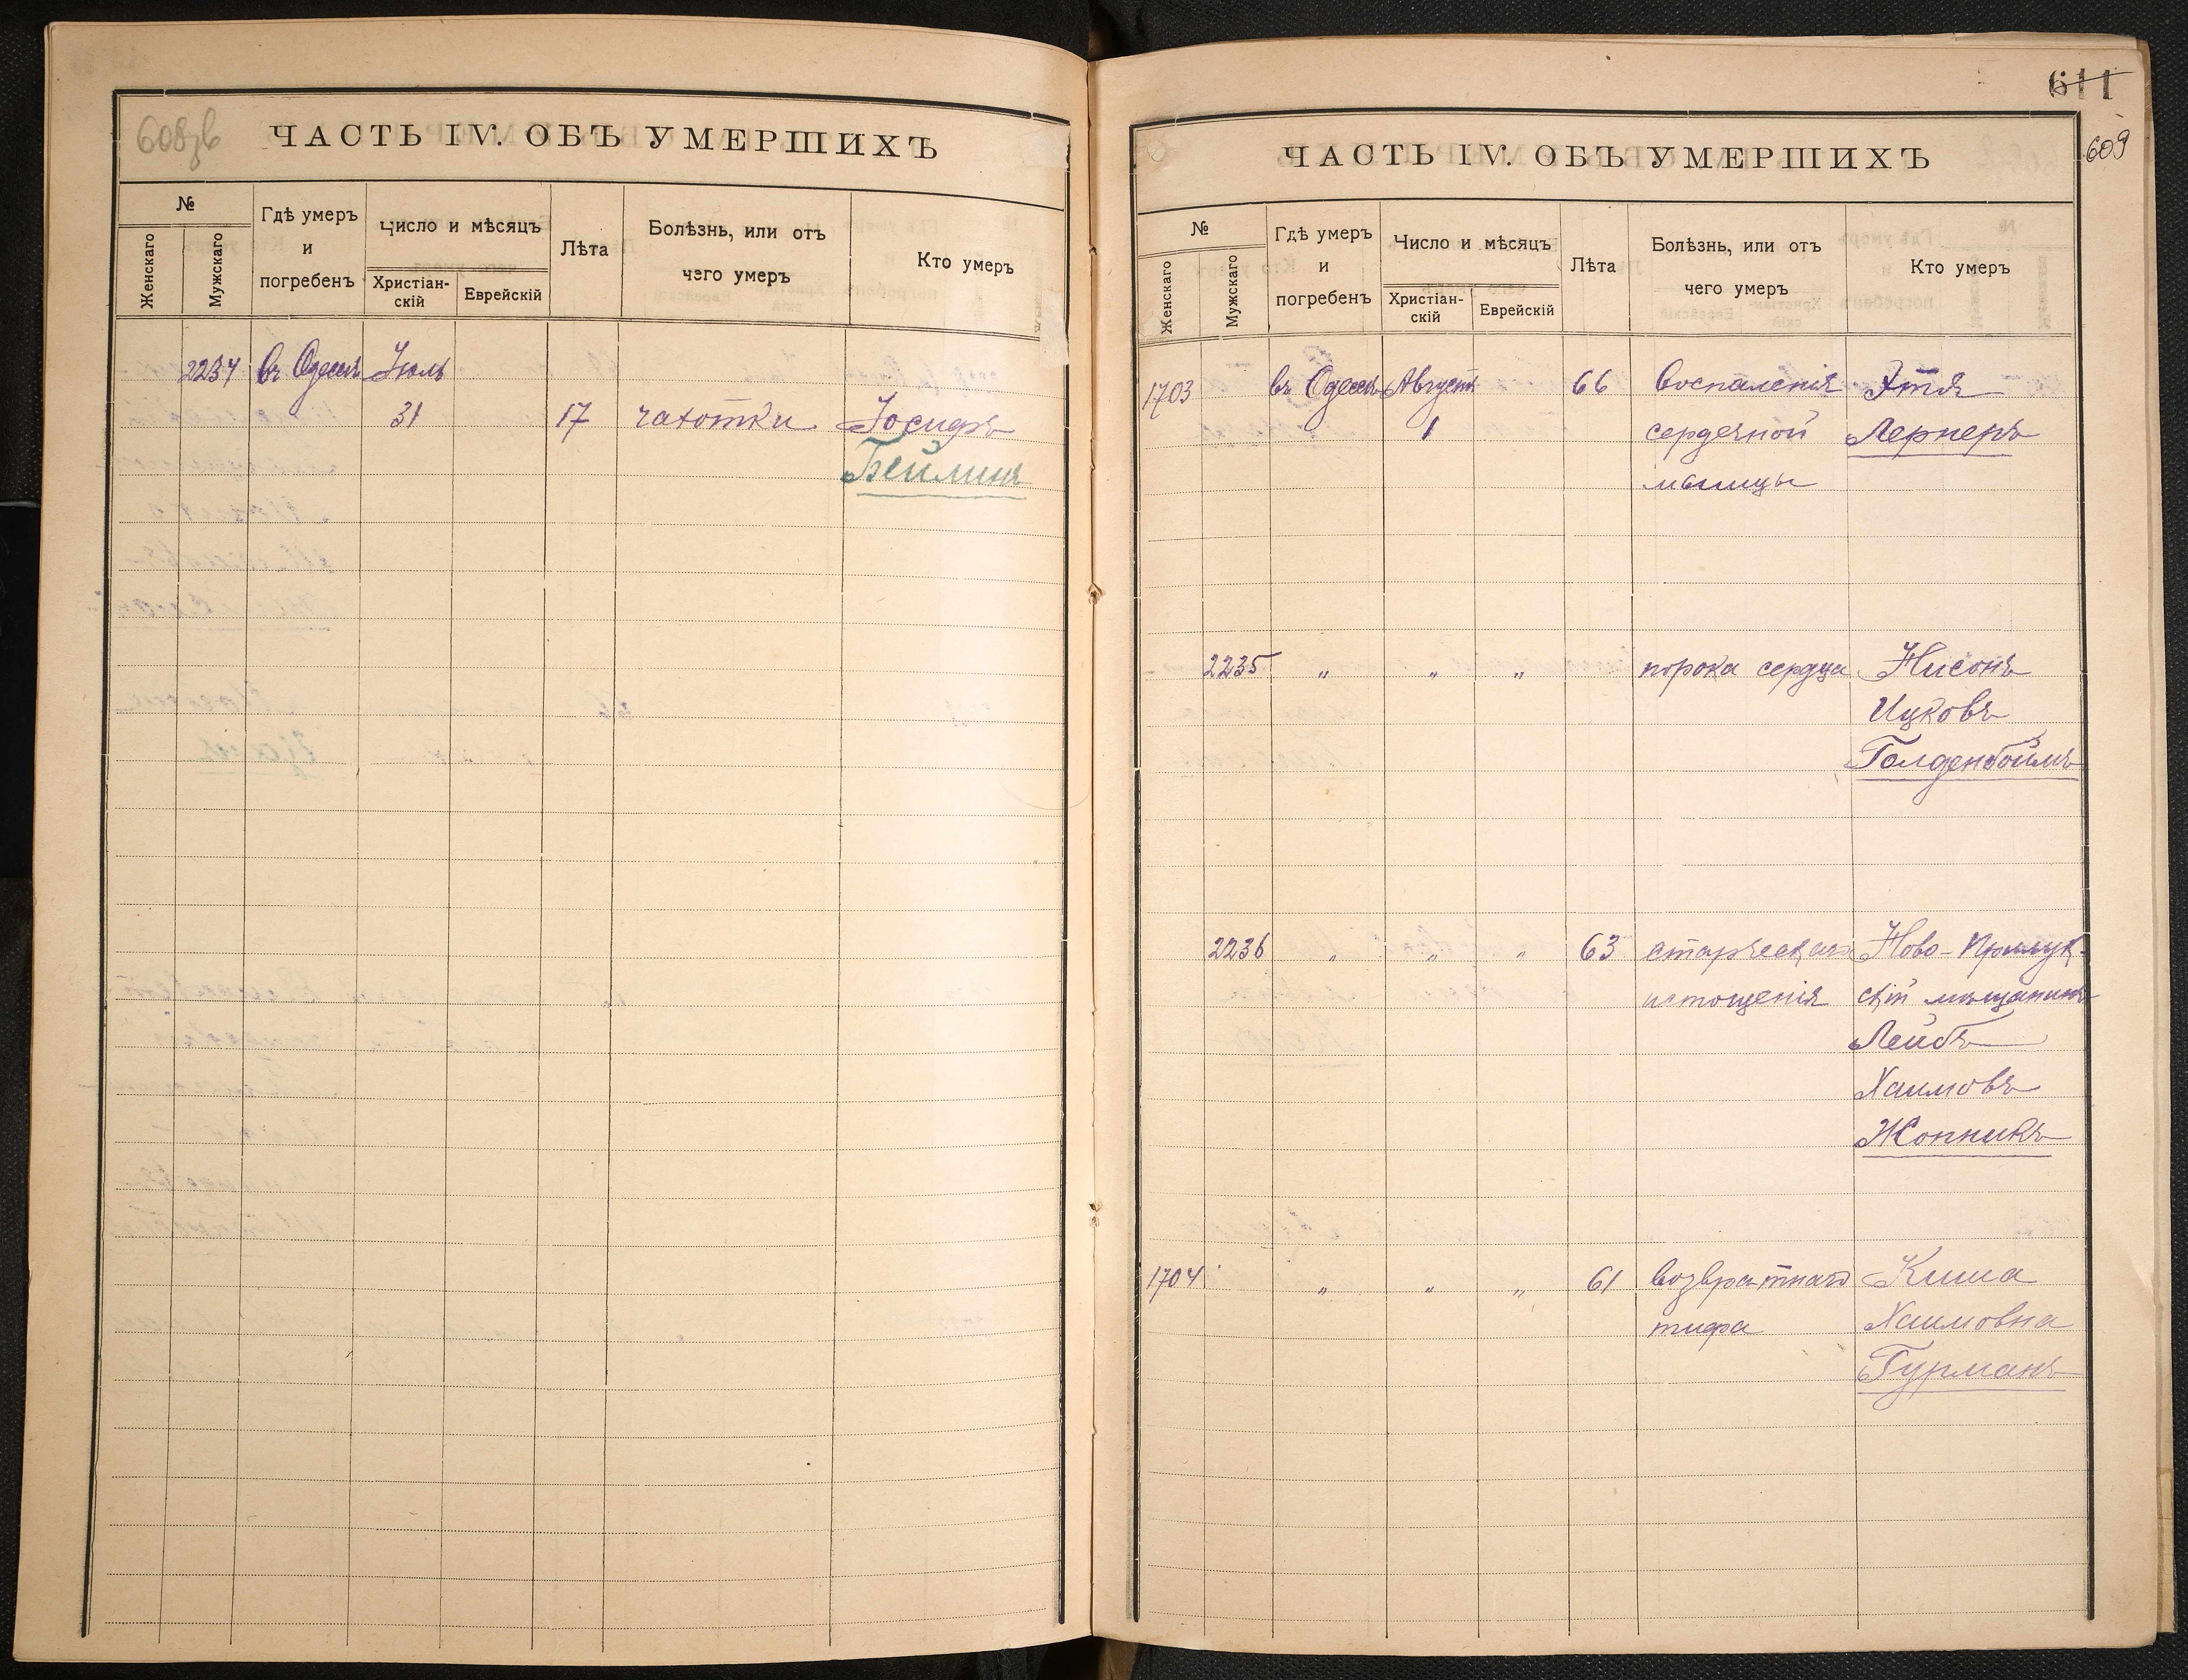 608зв
ЧАСТЬ IV. ОБЪ УМЕРШИХЪ
№
Женскаго
Мужскаго
Гдѣ умеръ
и
погребенъ
Число и мѣсяцъ
Христіан-
скій
Еврейскій
Лѣта
Болѣзнь, или отъ
чего умеръ
Кто умеръ
2234 въ Одессѣ Іюль
31 17 чахотки Іосифъ
Беймшъ
611
609
ЧАСТЬ IV. ОБЪ УМЕРШИХЪ
№
Женскаго
Мужскаго
Гдѣ умеръ
и
погребенъ
Число и мѣсяцъ
Христіан-
скій
Еврейскій
Лѣта
Болѣзнь, или отъ
чего умеръ
Кто умеръ
1703 въ Одессѣ Августъ 66 воспаленія Этля
1 сердечной Лернеръ
мышцы
2235 " " " порока сердца Нисонъ
Ицковъ
Голденбоймъ
2236 " " " 63 старческаго Ново-Прилук-
истощенія скій мѣщанинъ
Лейбъ
Хаимовъ
Жопникъ
1704 " " " 61 возвратнаго Киша
тифа Хаимовна
Гурманъ